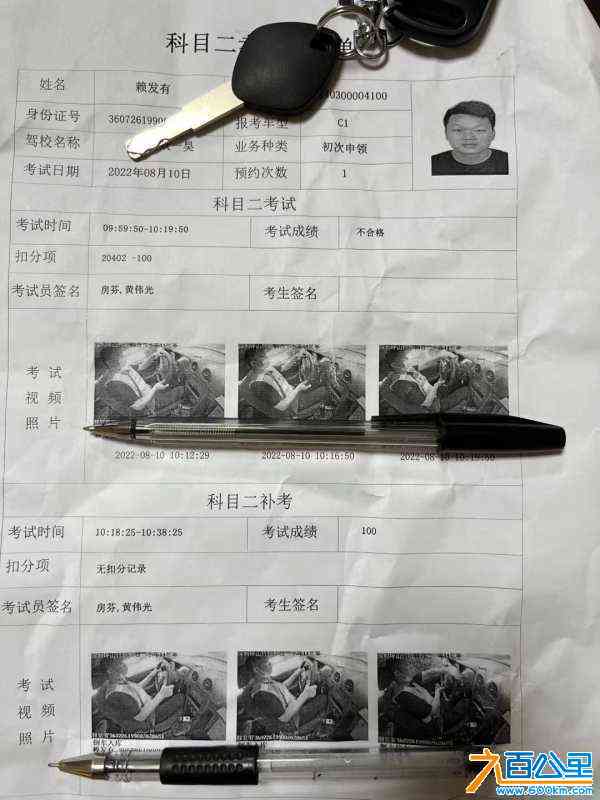 科目二考
单
姓名 赖发有 0300004100
身份证号 36072619900 报考车型 C1
驾校名称 一昊 业务种类 初次申领
考试日期 2022年08月10日 预约次数 1
科目二考试
考试时间 09:59:50-10:19:50 考试成绩 不合格
扣分项 20402 -100
考试员签名 房芬,黄伟光 考生签名
考试视频照片
2022-08-10 10:12:29 2022-08-10 10:16:50 2022-08-10 10:19:50
科目二补考
考试时间 10:18:25-10:38:25 考试成绩 100
扣分项 无扣分记录
考试员签名 房芬,黄伟光 考生签名
考试视频照片
倒车入库
九百公里
www.600km.com